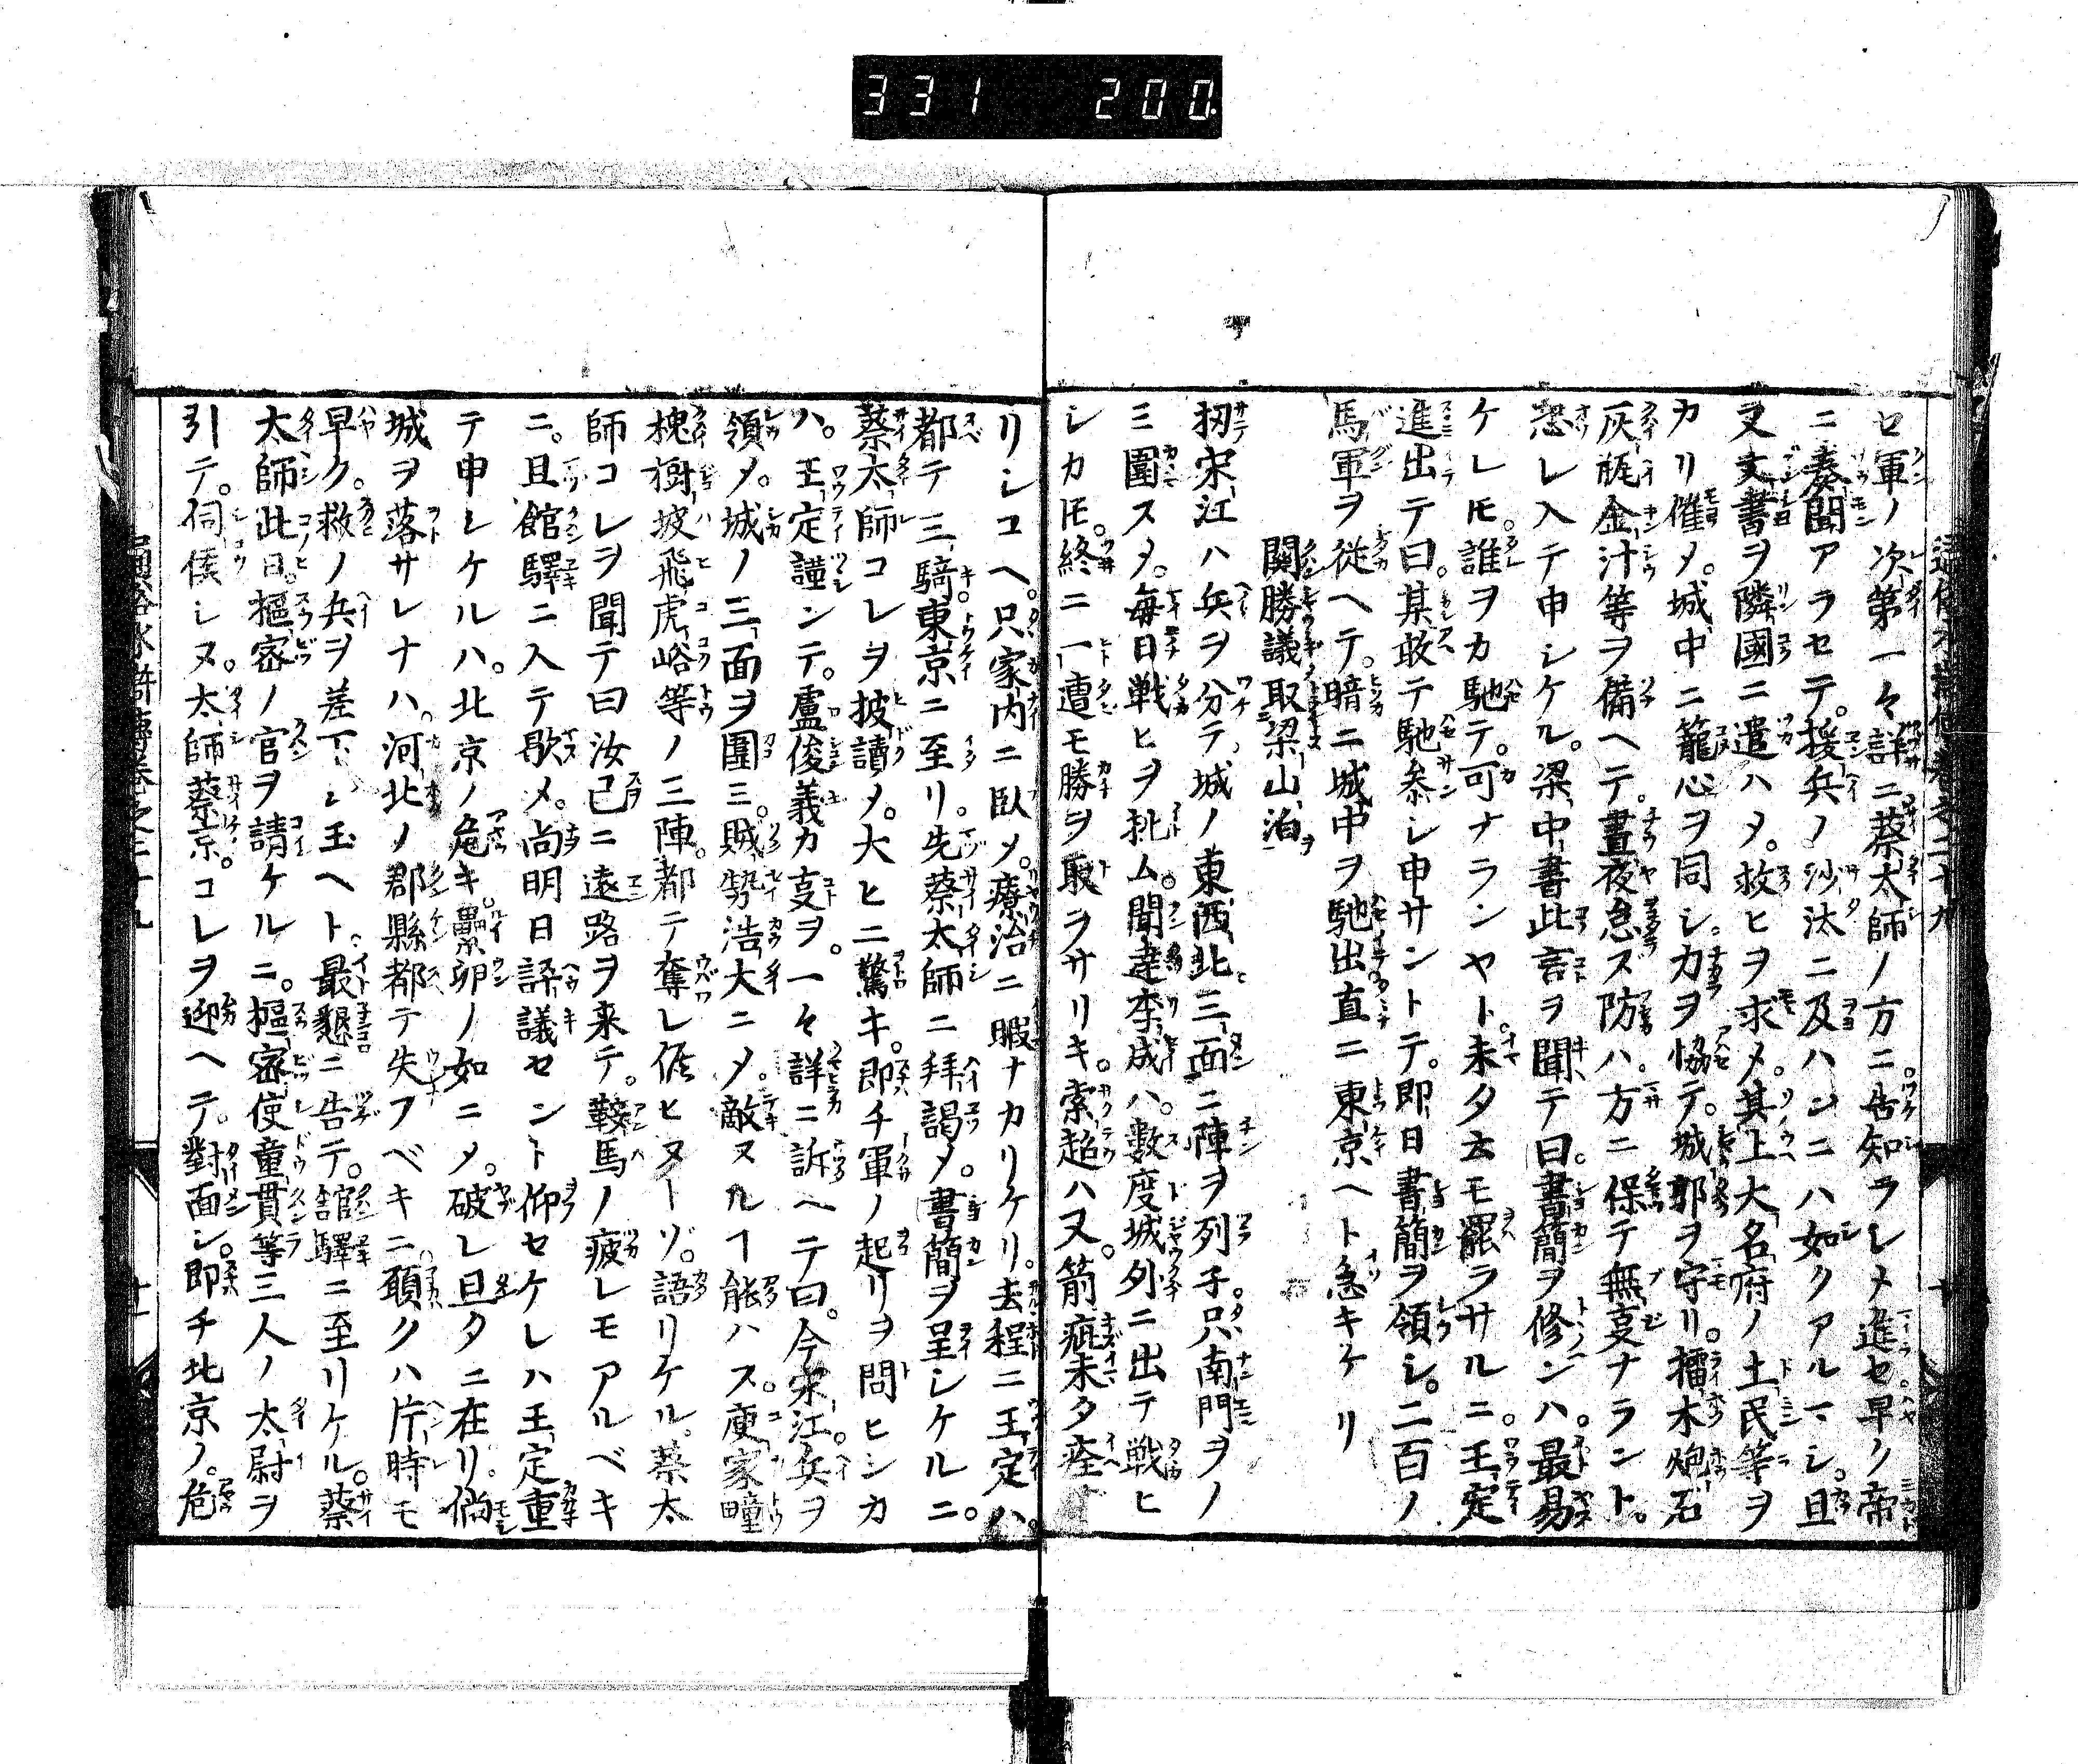 331 200
ロ軍ノ次第一々詳ニ蔡太師ノ方ニ。告知ラシメ進セ早ク帝
ニ奏聞アラセテ。援兵ノ沙汰ニ及ハンニハ如クアルマシ。且
又文書ヲ隣國ニ遣ハメ。救ヒヲ求メ。其上大名府ノ土民等ヲ
カリ催メ。城中ニ籠心ヲ同シ。力ヲ恊テ。城郭ヲ守リ。擂木炮石
灰瓶金汁等ヲ備ヘテ。晝夜怠ズ防ハ。方ニ保テ無㕝ナラント。
恐レ入テ申シケル。梁中書此言ヲ聞テ曰。書簡ヲ修ンハ。最易
ケレ𪜈。誰ヲカ馳テ。可ナランヤト。未タ云モ罷ラサルニ。王定
進出テ曰。某敢テ馳参シ申サントテ。即日書簡ヲ領シ。二百ノ
馬軍ヲ從ヘテ。暗ニ城中ヲ馳出直ニ東京ヘト急キケリ
關勝議取梁山泊
扨宋江ハ兵ヲ分テ。城ノ東西北三面ニ陣ヲ列子。只南門ヲノ
ミ圍スメ。毎日戦ヒヲ挑ム。聞達李成ハ。數度城外ニ出テ戦ヒ
シカ𪜈。終ニ一遭モ勝ヲ取ラサリキ。索超ハ又。箭疵未タ痊
リシユヘ。只家内ニ臥メ。療治ニ暇ナカリケリ。去程ニ王定ハ。
都テ三騎東京ニ至リ。先蔡太師ニ拜謁メ。書簡ヲ呈シケルニ。
蔡太師コレヲ披讀メ。大ヒニ驚キ。即チ軍ノ起リヲ問ヒシカ
ハ。王定謹ンテ。盧俊義カ㕝ヲ。一々詳ニ訴ヘテ曰。今宋江。兵ヲ
領メ。城ノ三面ヲ圍ミ。賊勢浩大ニメ。敵スルヿ能ハス。𢈔家疃
槐樹坡飛虎峪等ノ三陣。都テ奪レ候ヒヌト。語リケル。蔡太
師コレヲ聞テ曰汝已ニ遠路ヲ来テ。鞍馬ノ疲レモアルベキ
ニ。且館驛ニ入テ歇メ。尚明日評議セント仰セケレハ王定重
テ申シケルハ。北京ノ危キ。纍卵ノ如ニメ。破レ旦タニ在リ。倘
城ヲ落サレナハ。河北ノ郡縣都テ失フベキニ。願クハ片時モ
早ク。救ノ兵ヲ差下シ玉ヘト。最懇ニ告テ。舘驛ニ至リケル。蔡
太師此日。樞密ノ官ヲ請ケルニ。樞密使童貫等三人ノ太尉ヲ
引テ。伺候シヌ。太師蔡京。コレヲ迎ヘテ。對面シ。即チ北京ノ。危